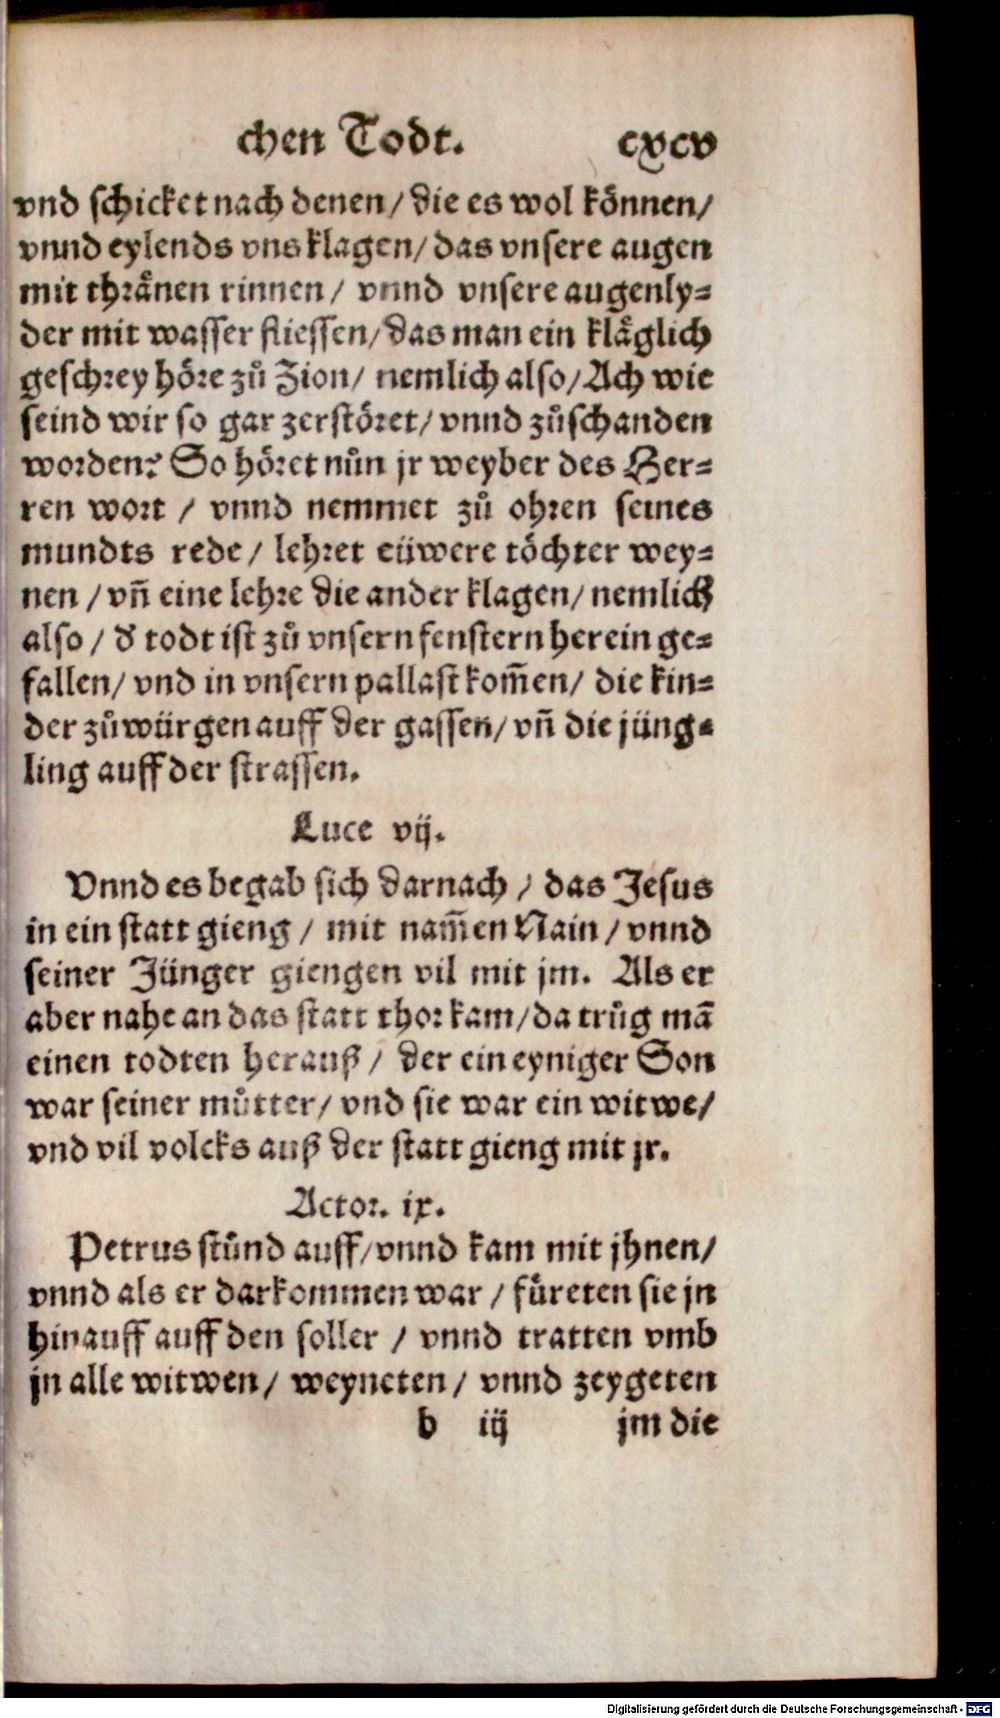 chen Todt. cxcv
vnd schicket nach denen / die es wol koͤnnen /
vnnd eylends vns klagen / das vnsere augen
mit thraͤnen rinnen / vnnd vnsere augenly⸗
der mit wasser fliessen / das man ein klaͤglich
geschrey hoͤre zuͦ Zion / nemlich also / Ach wie
seind wir so gar zerstoͤret / vnnd zuͦschanden
worden? So hoͤret nuͦn jr weyber des Her⸗
ren wort / vnnd nemmet zuͦ ohren seines
mundts rede / lehret eüwere toͤchter wey⸗
nen / vñ eine lehre die ander klagen / nemlich
also / d̕ todt ist zuͦ vnsern fenstern herein ge⸗
fallen / vnd in vnsern pallast kom̃en / die kin⸗
der zuͦwürgen auff der gassen / vñ die jüng⸗
ling auff der strassen.
Luce vij.
Vnnd es begab sich darnach / das Jesus
in ein statt gieng / mit nam̃en Nain / vnnd
seiner Jünger giengen vil mit jm. Als er
aber nahe an das statt thor kam / da truͦg mã
einen todten herauß / der ein eyniger Son
war seiner muͦtter / vnd sie war ein witwe /
vnd vil volcks auß der statt gieng mit jr.
Actor. ix.
Petrus stuͦnd auff / vnnd kam mit jhnen /
vnnd als er darkommen war / fuͤreten sie jn
hinauff auff den soller / vnnd tratten vmb
jn alle witwen / weyneten / vnnd zeygeten
b iij jm die
Digitalisierung gefördert durch die Deutsche Forschungsgemeinschaft - DFG